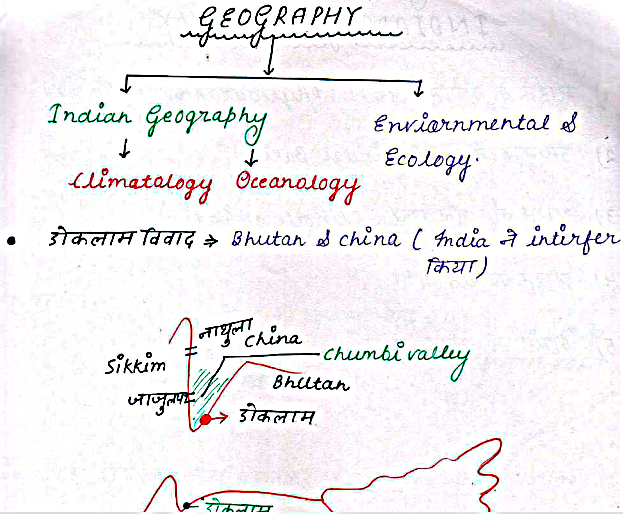 GEOGRAPHY
Indian Geography
Enviornmental &
Ecology.
Climatology Oceanology
• डोकलाम विवाद ⇒ Bhutan & china ( India ने interfer
किया )
नाथुला
China
Sikkim
Chumbi valley
Bhutan
डोकलाम
डोकलाम